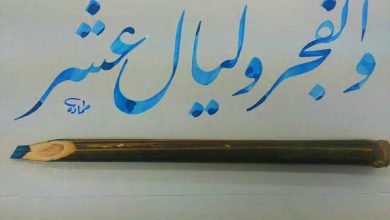 والفجر وليال عشر